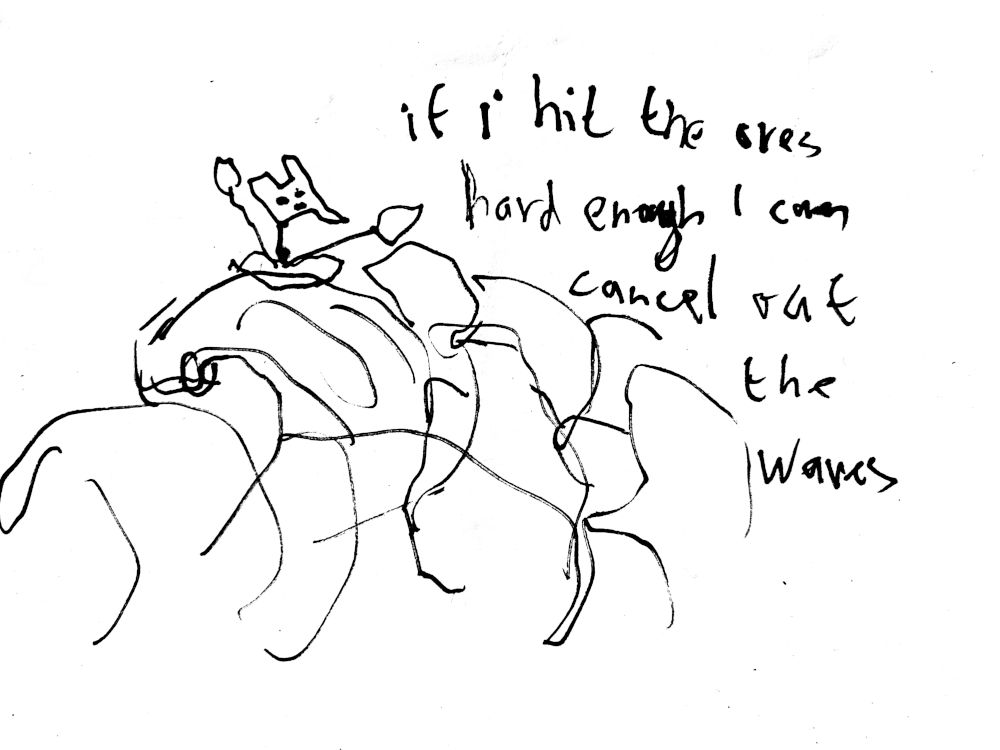 if i hit the ores
hard enough I can
cancel out
the
waves